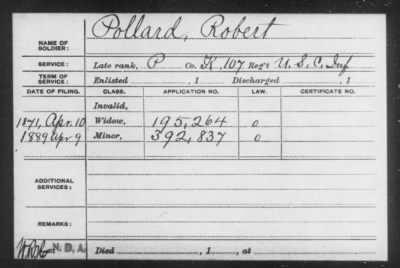 NAME OF SOLDIER: Pollard, Robert
SERVICE: Late rank, P Co. K. 107 Reg't U. S. C. Inf
TERM OF SERVICE: Enlisted , 1 Discharged , 1
DATE OF FILING. CLASS. APPLICATION NO. LAW. CERTIFICATE NO.
Invalid,
1871, Apr. 10 Widow, 195,264 0
1889 Apr. 9 Minor, 392,837 0
ADDITIONAL SERVICES:
REMARKS:
N. D. A. Died , 1 , at